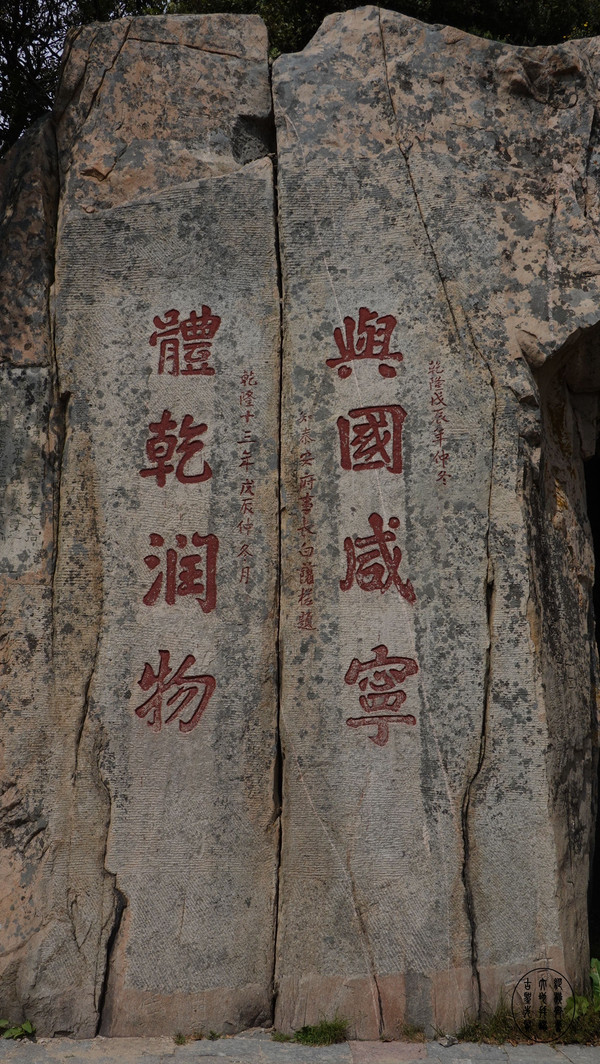 乾隆戊辰年仲冬
與國咸寧
泰安府事長白題
乾隆十三年戊辰仲冬月
體乾润物